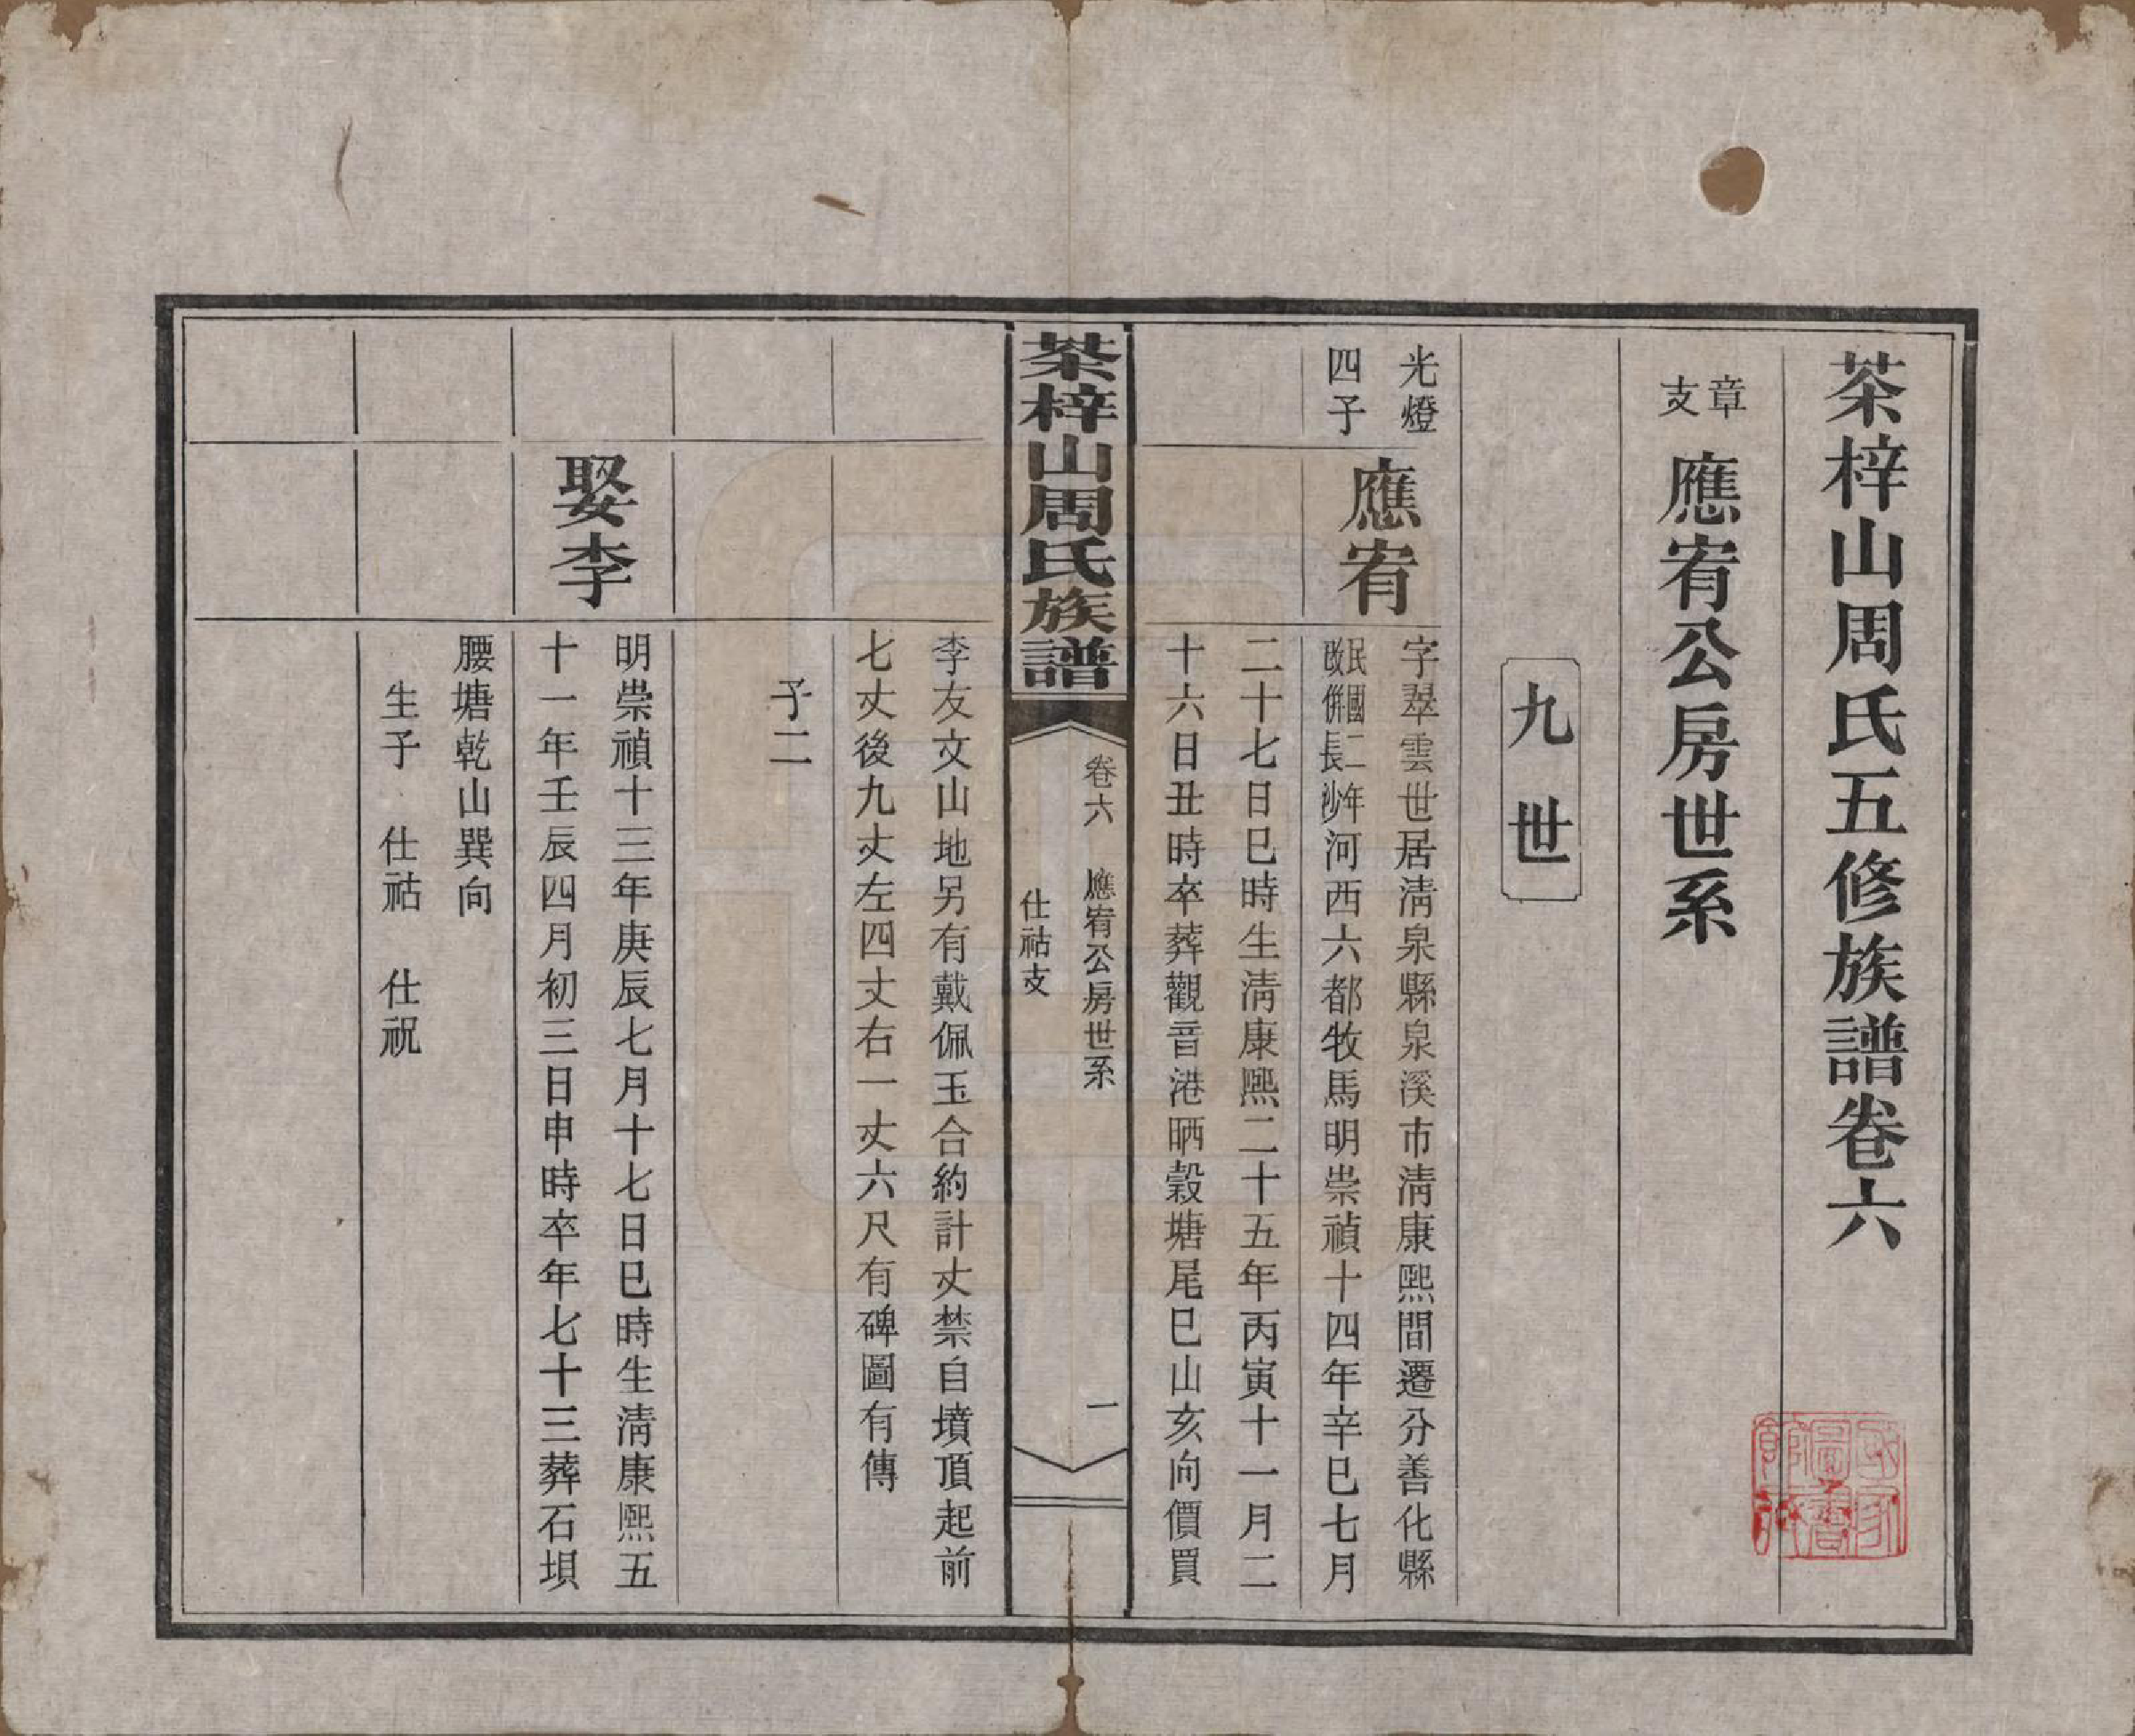 茶梓山周氏五修族譜卷六
章支
應宥公房世系
九世
光燈
四子
應宥
字翠雲世居淸泉縣泉溪市淸康熙間遷分善化縣
民國二年改併長沙河西六都牧馬明崇禎十四年辛巳七月
二十七日巳時生淸康熙二十五年丙寅十一月二
十六日丑時卒葬觀音港晒穀塘尾巳山亥向價買
茶梓山周氏族譜
卷六 應宥公房世系 一
仕祜支
李友文山地另有戴佩玉合約計丈禁自墳頂起前
七丈後九丈左四丈右一丈六尺有碑圖有傳
子二
娶李
明崇禎十三年庚辰七月十七日巳時生淸康熙五
十一年壬辰四月初三日申時卒年七十三葬石垻
腰塘乾山巽向
生子 仕祜 仕祝